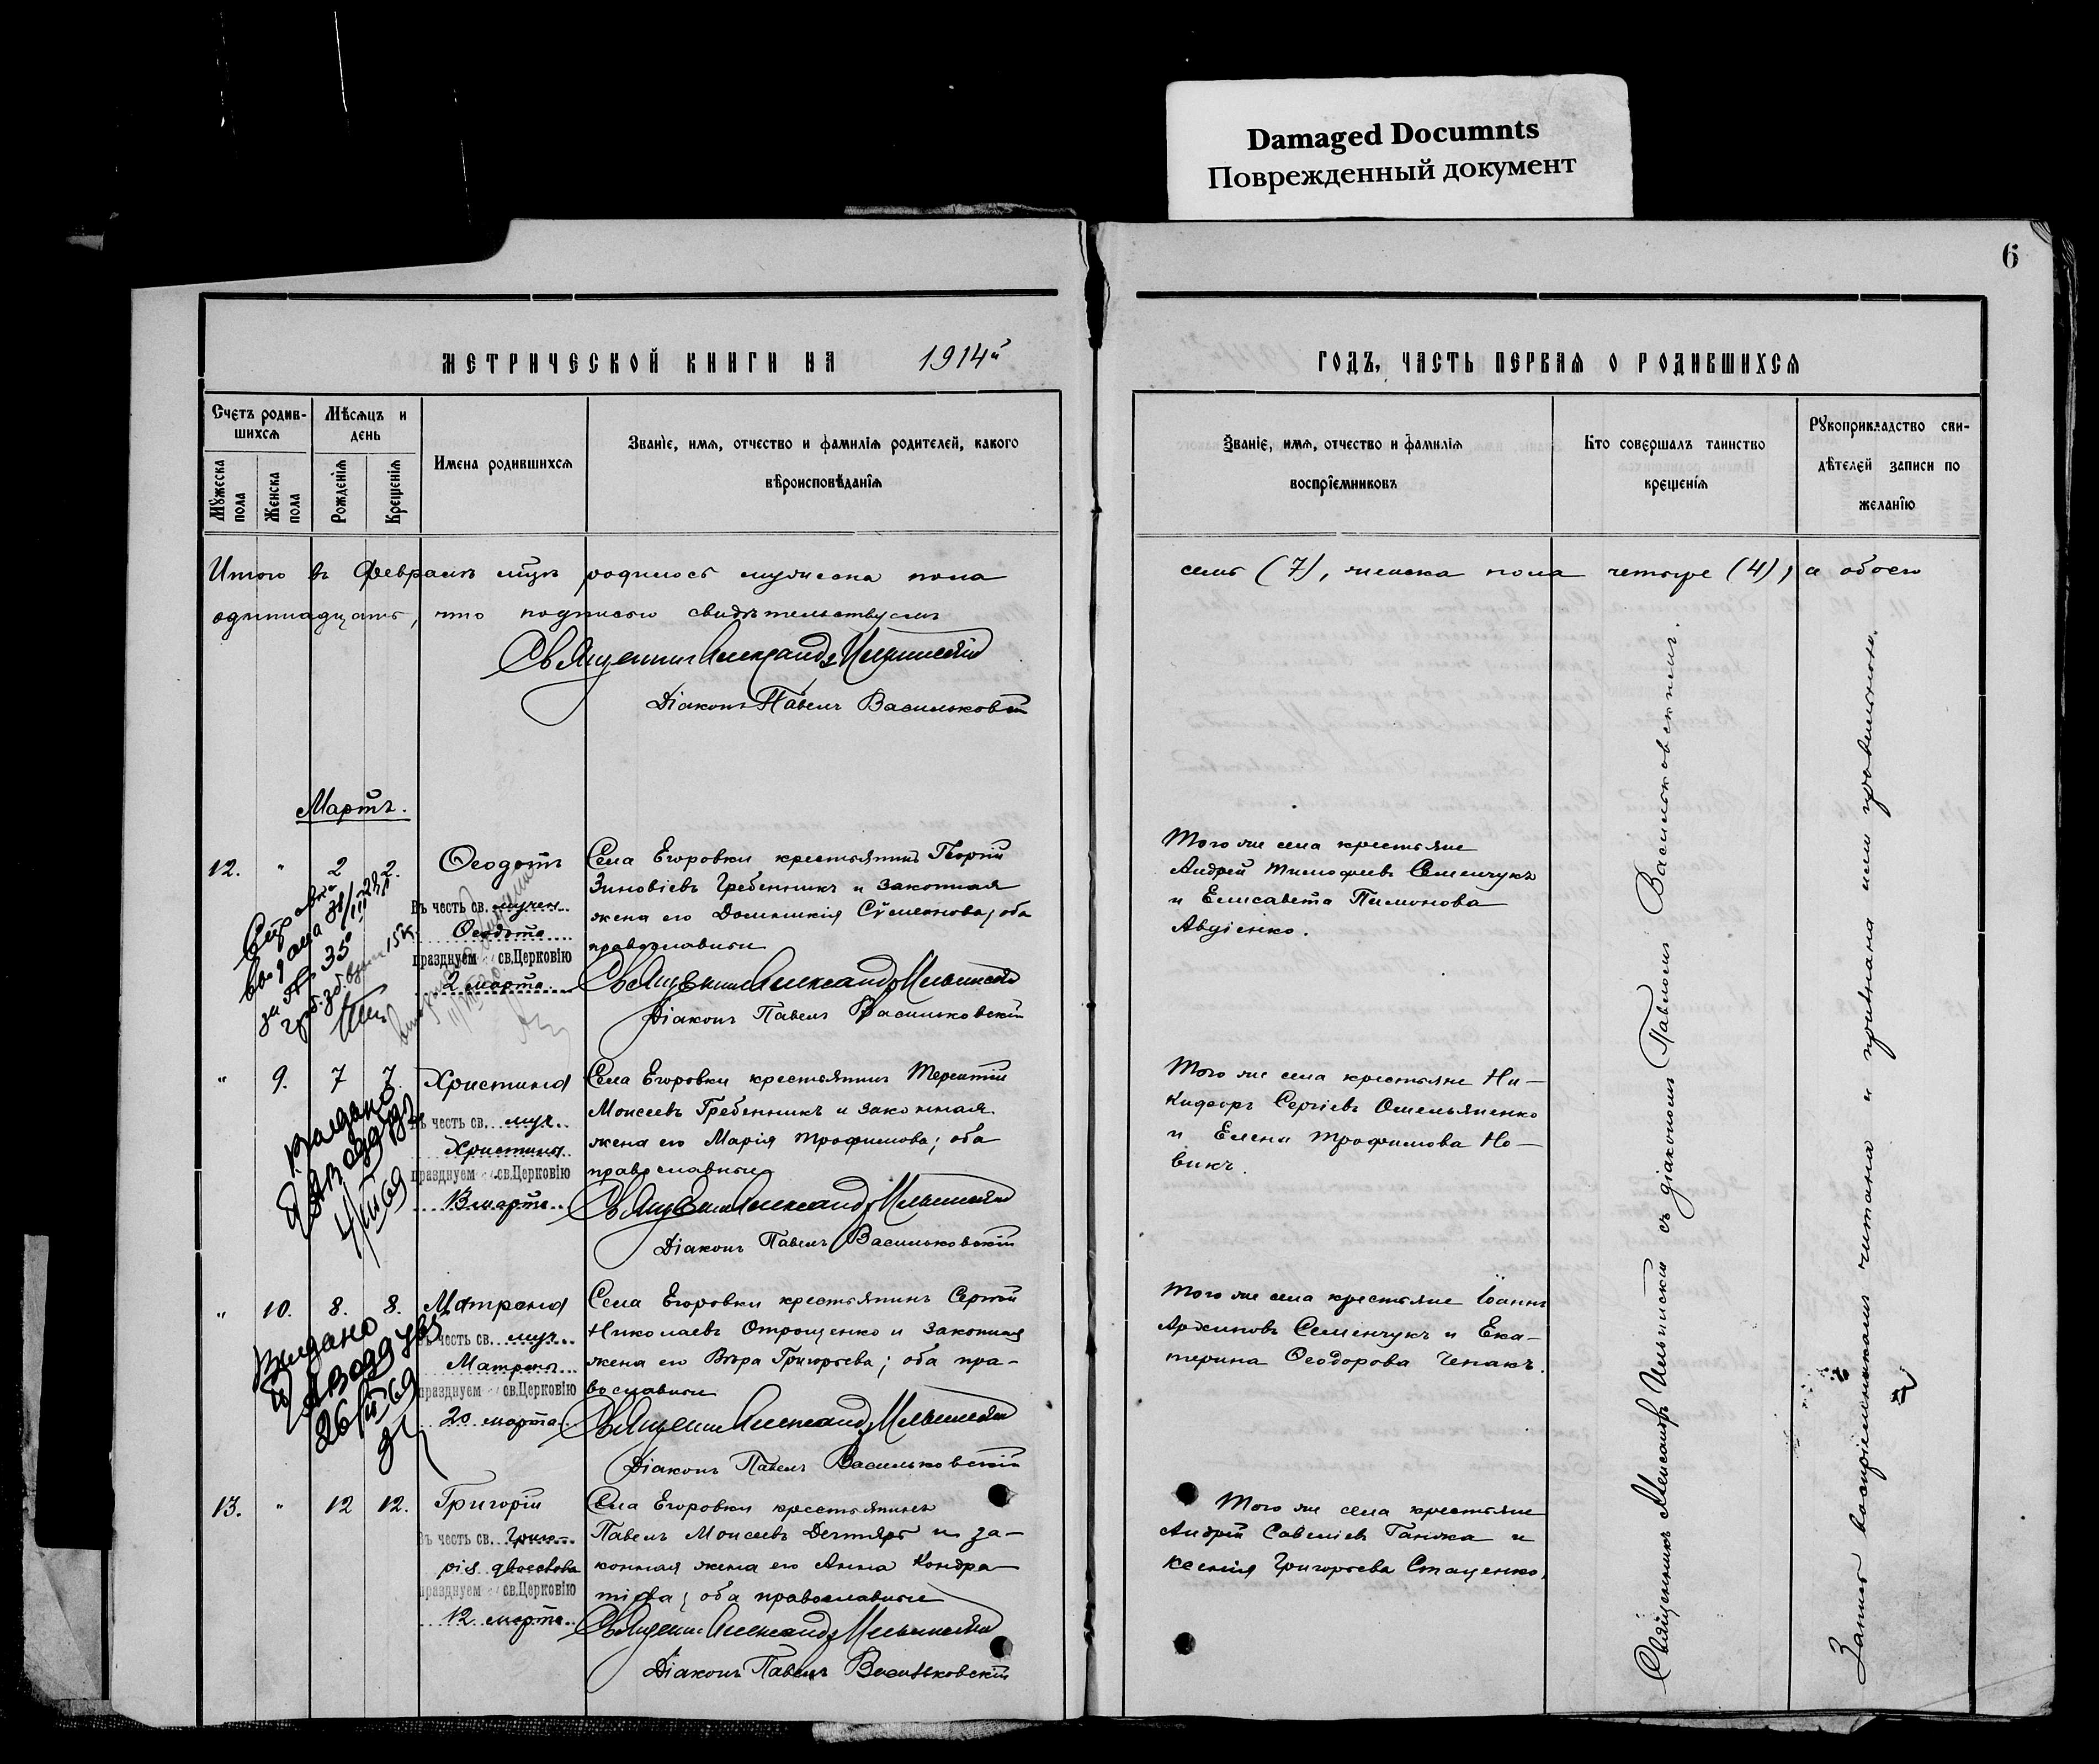 Damaged Documnts
Поврежденный документ
6
МЕТРИЧЕСКОЙ КНИГИ НА 1914й
ГОДЪ, ЧАСТЬ ПЕРВАЯ О РОДИВШИХСЯ
Счетъ родив-
шихся
Мѣсяцъ и
день
Мужеска
пола
Женска
пола
Рожденія
Крещенія
Имена родившихся
Званіе, имя, отчество и фамилія родителей, какого
вѣроисповѣданія
Званіе, имя, отчество и фамилія
воспріемниковъ
Кто совершалъ таинство
крещенія
Рукоприкладство сви-
дѣтелей записи по
желанію
Итого въ Февралѣ мцѣ родилось мужеска пола
семь (7), женска пола четыре (4), а обоего
одиннадцать, что подписью свидѣтельствуемъ
Священникъ Александръ Ильинскій
Діаконъ Павелъ Васильковскій
Мартъ.
12. " 2 2.
Ѳеодотъ
Въ честь св. мучен.
Ѳеодота
празднуем св. Церковію
2 марта
Села Егоровки крестьянинъ Георгій
Зиновіевъ Гребенникъ и законная
жена его Домникія Сѵмеонова; оба
православные
Священникъ Александръ Ильинскій
Діаконъ Павелъ Васильковскій
Того же села крестьяне
Андрей Тимофеевъ Семенчукъ
и Елисавета Пимонова
Авдіенко.
" 9. 7 7.
Христина
Въ честь св. муч.
Христины
празднуем св. Церковію
13 марта
Выдано
4/III 69
Села Егоровки крестьянинъ Терентій
Моисеевъ Гребенникъ и законная
жена его Марія Трофимова; оба
православные
Священникъ Александръ Ильинскій
Діаконъ Павелъ Васильковскій
Того же села крестьяне Ни-
кифоръ Сергіевъ Омельяненко
и Елена Трофимова Но-
викъ.
" 10. 8. 8.
Матрона
Въ честь св. муч.
Матроны
празднуем св. Церковію
20 марта
Выдано
26/III 69
Села Егоровки крестьянинъ Сергій
Николаевъ Отрощенко и законная
жена его Вѣра Григорьева; оба пра-
вославные
Священникъ Александръ Ильинскій
Діаконъ Павелъ Васильковскій
Того же села крестьяне Іоаннъ
Архиповъ Семенчукъ и Ека-
терина Ѳеодорова Чепакъ.
13. " 12 12.
Григорій
Въ честь св. Григо-
рія двоеслова
празднуем св. Церковію
12 марта
Села Егоровки крестьянинъ
Павелъ Моисеевъ Дегтярь и за-
конная жена его Анна Кондра
тіева; оба православные
Священникъ Александръ Ильинскій
Діаконъ Павелъ Васильковскій
Того же села крестьяне
Андрей Савеліевъ Ганжа и
Ксенія Григорьева Стаценко.
Священникъ Александръ Ильинскій съ діакономъ Павломъ Васильковскимъ.
Запись воспріемникамъ читана и признана ими правильною.